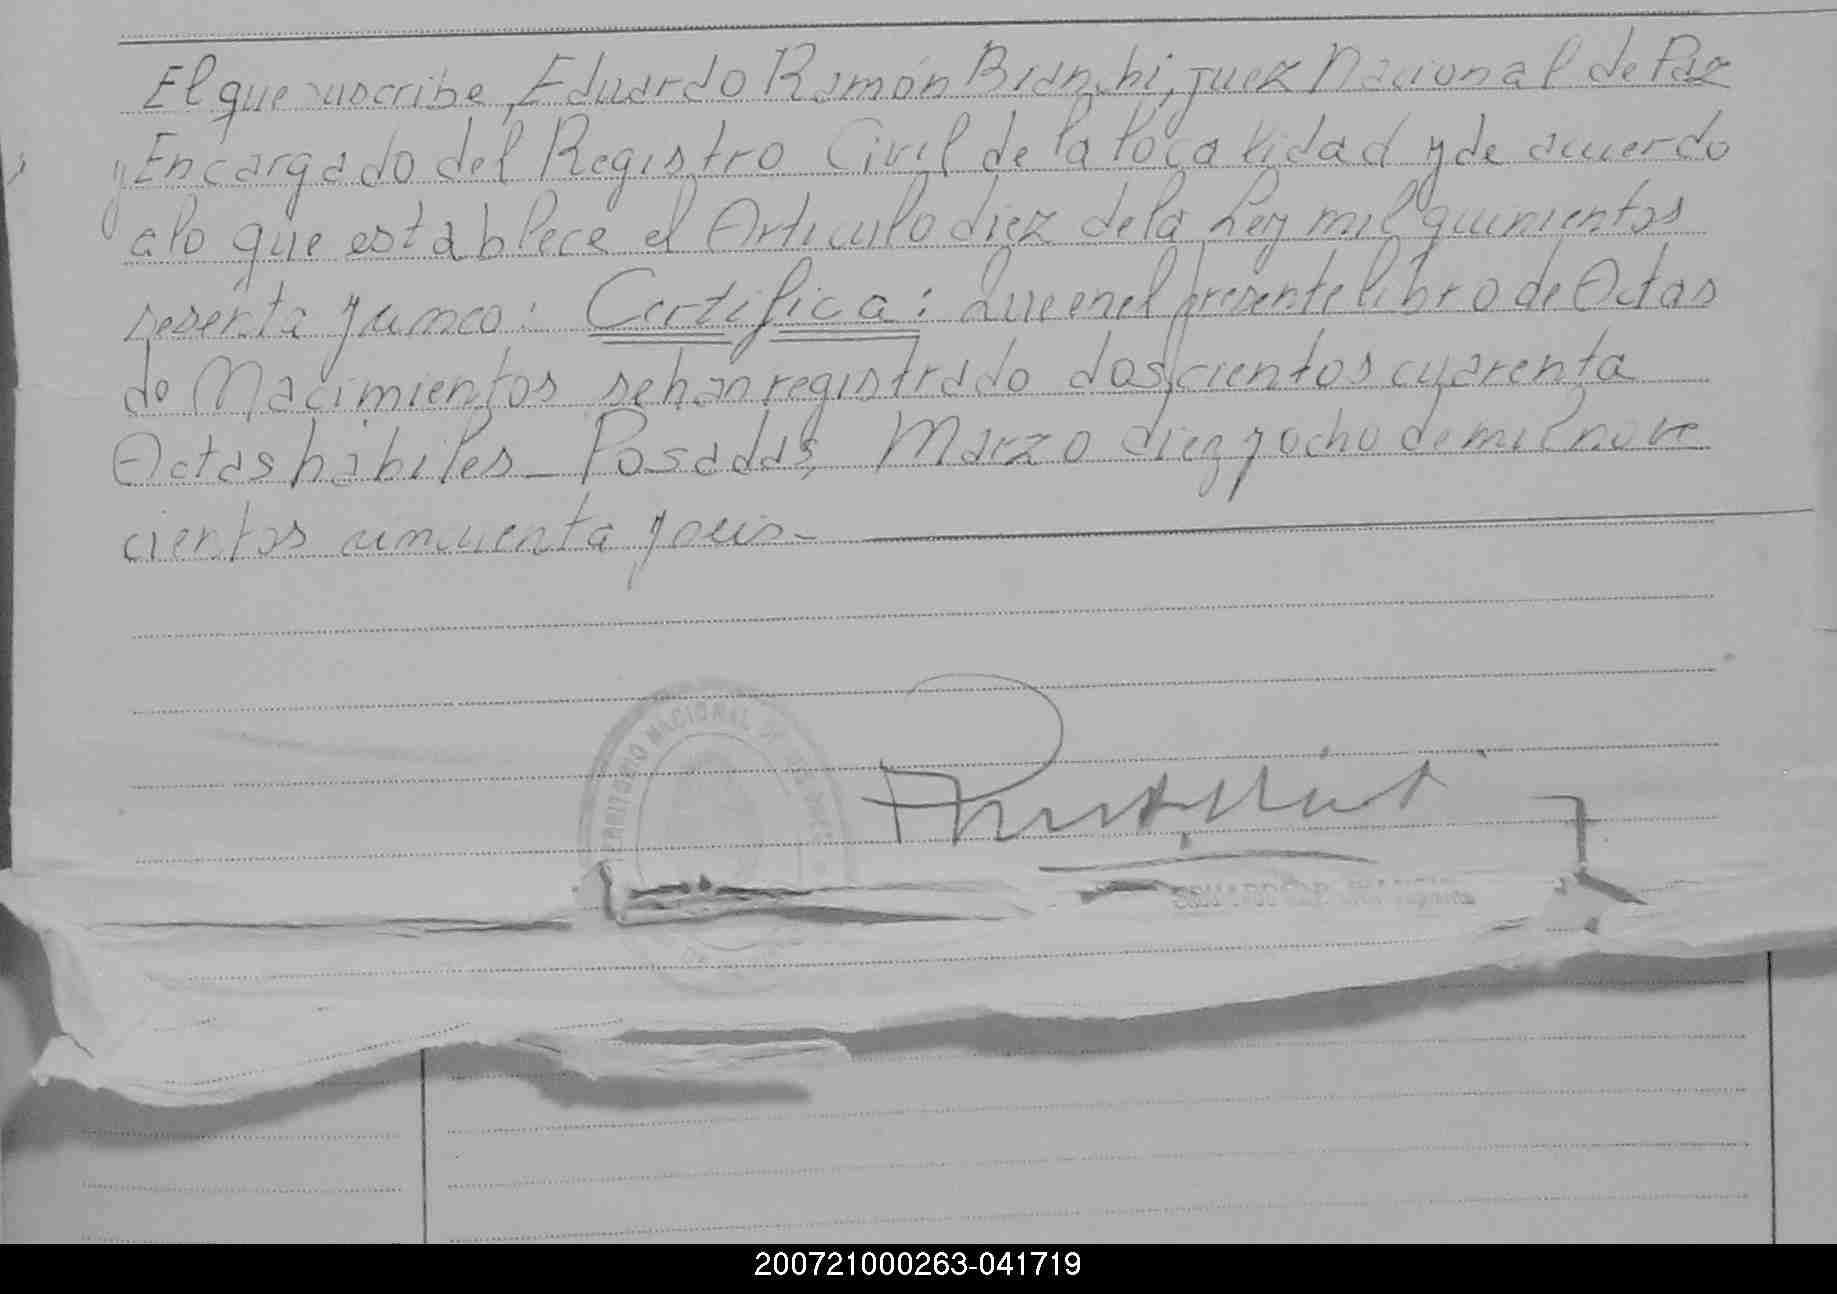 El que suscribe, Eduardo Ramón Bianchi, juez Nacional de Paz
y Encargado del Registro Civil de la localidad y de acuerdo
a lo que establece el Articulo diez de la Ley mil quinientos
sesenta y cinco: Certifica: Que en el presente libro de Actas
de Nacimientos se han registrado doscientos cuarenta
Actas hábiles_ Posadas, Marzo diez y ocho de mil nove
cientos cincuenta y seis._
TERRITORIO NACIONAL DE MISIONES
200721000263-041719